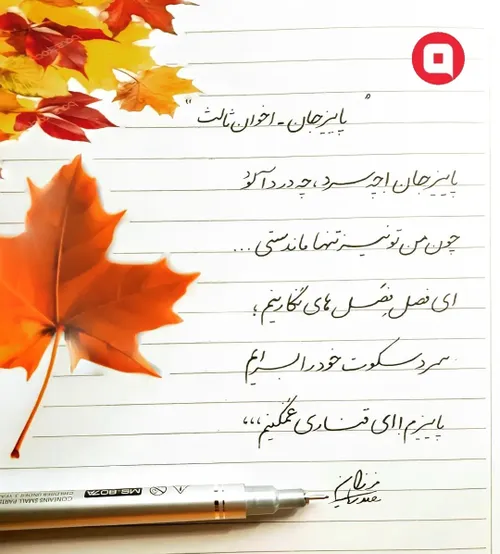 "پاییز جان - اخوان ثالث"
پاییز جان! چه سرد، چه درد آلود
چون من تو نیز تنها ماندستی ...
ای فصل فصل‌های نگارینم؛
سرد سکوت خود را بسراییم
پاییزم! ای قناری غمگینم،،،
MS.807A
CONTAINS SMALL PARTS